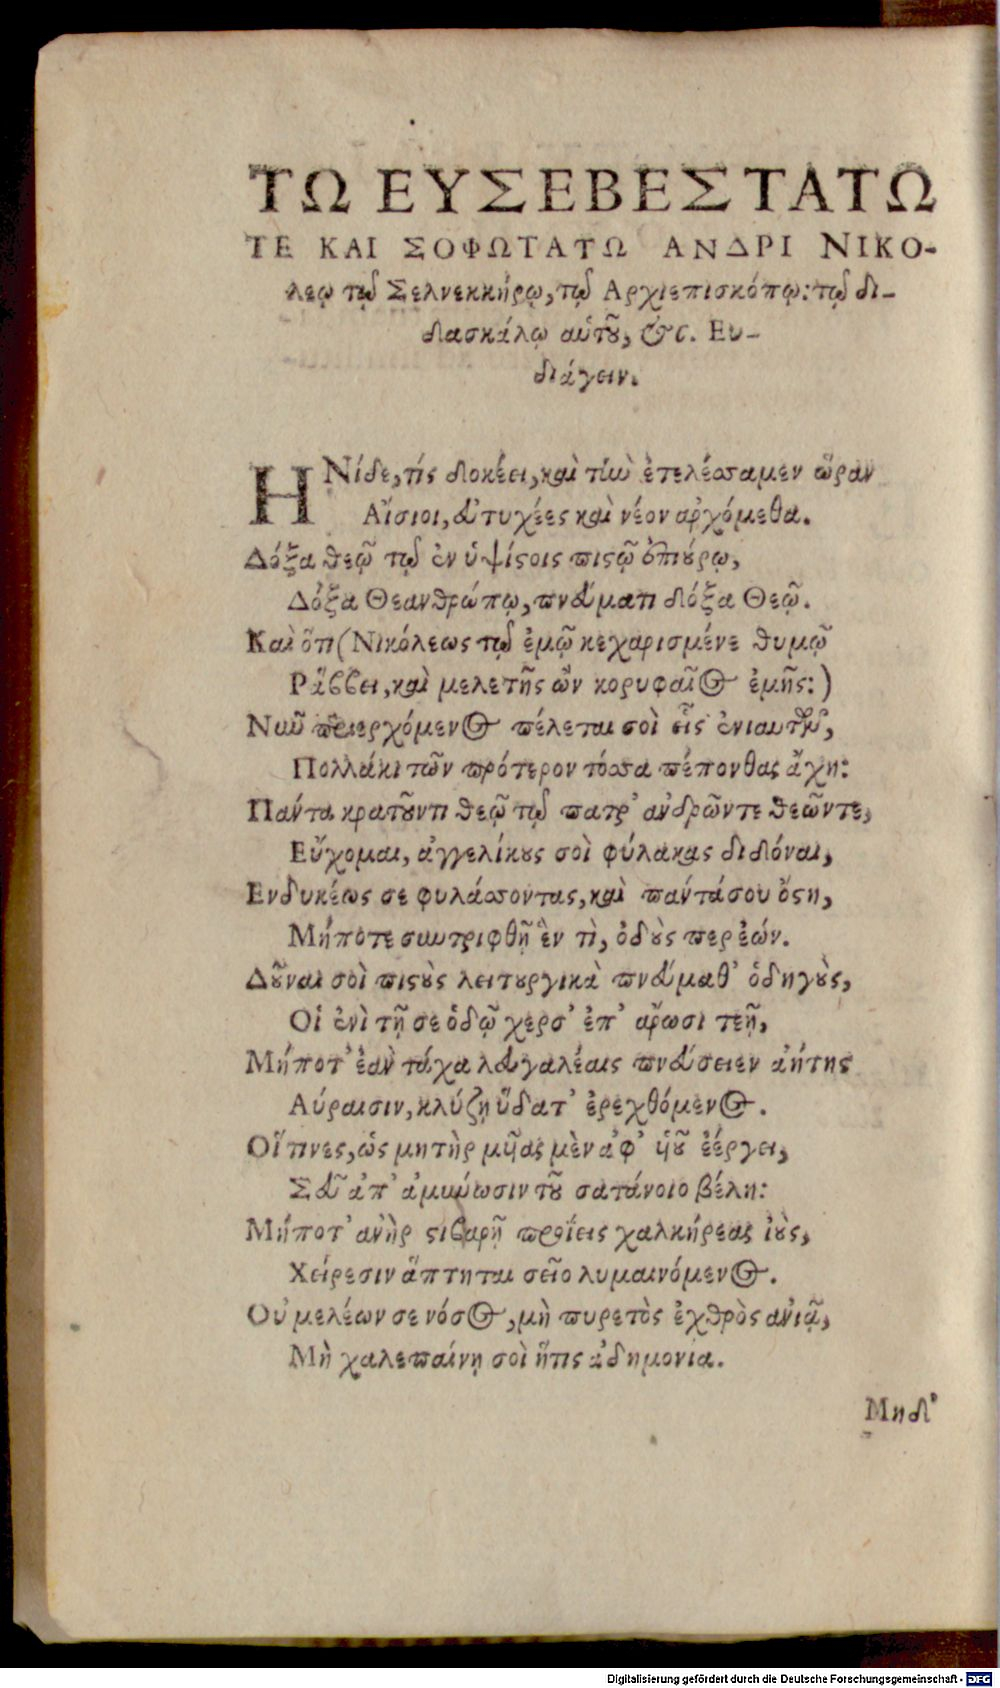 ΤΩ ΕΥΣΕΒΕΣΤΑΤΩ
ΤΕ ΚΑΙ ΣΟΦΩΤΑΤΩ ΑΝΔΡΙ ΝΙΚΟ-
λεῳ τῷ Σελνεκκήρῳ, τῷ Αρχιεπισκόπῳ: τῷ δι-
δασκάλῳ αὐτοῦ, &c. Ευ-
διάγειν.
ΗΝίδε, τίς δοκέει, καὶ τίω ἐτελέσσαμεν ὥραν
Αἴσιοι, εὐτυχέες καὶ νέον αρχόμεθα.
Δόξα θεῷ τῷ ἐν ὑψίστοις πιστῷ ἐπιούρῳ,
Δόξα Θεανθρώπῳ, πνεύματι δόξα Θεῷ.
Καὶ ὅτι (Νικόλεως τῷ ἐμῷ κεχαρισμένε θυμῷ
Ράββει, καὶ μελετῆς ὢν κορυφαῖος ἐμῆς:)
Νωῦ περιερχόμενος πέλεται σοὶ εἷς ἐνιαυτὸς,
Πολλάκι τῶν πρότερον τόσσα πέπονθας ἄχη:
Πάντα κρατοῦντι θεῷ τῷ πατρ' ανδρῶντε θεῶντε,
Εὔχομαι, ἀγγελίκους σοὶ φύλακας διδόναι,
Ενδυκέως σε φυλάσσοντας, καὶ παντάσου ὄστη,
Μήποτε συντριφθῇ ἓν τὶ, ὁδοὺς περ ἐών.
Δοῦναι σοὶ πιστοὺς λειτουργικὰ πνεύμαθ' ὁδηγοὺς,
Οἱ ἐνὶ τῇ σε ὁδῷ χερσ' ἐπ' αἴρωσι τεῇ,
Μήποτ' ἐὰν τάχα λευγαλέαις πνεύσειεν ἀήτης
Αύραισιν, κλύζῃ ὕδατ' ἐρεχθόμενος.
Οἵτινες, ὡς μητὴρ μυίας μὲν ἀφ' υἱοῦ ἐέργει,
Σεῦ ἀπ' ἀμυνώσιν τοῦ σατάνοιο βέλη:
Μήποτ' ανὴρ στιβαρῇ προΐεις χαλκήρεας ἰοὺς,
Χείρεσιν ἅπτηται σεῖο λυμαινόμενος.
Οὐ μελέων σε νόσος, μὴ πυρετὸς ἐχθρὸς ανιᾷ,
Μὴ χαλεπαίνῃ σοὶ ἥτις ἀδημονία.
Μηδ'
Digitalisierung gefördert durch die Deutsche Forschungsgemeinschaft - DFG